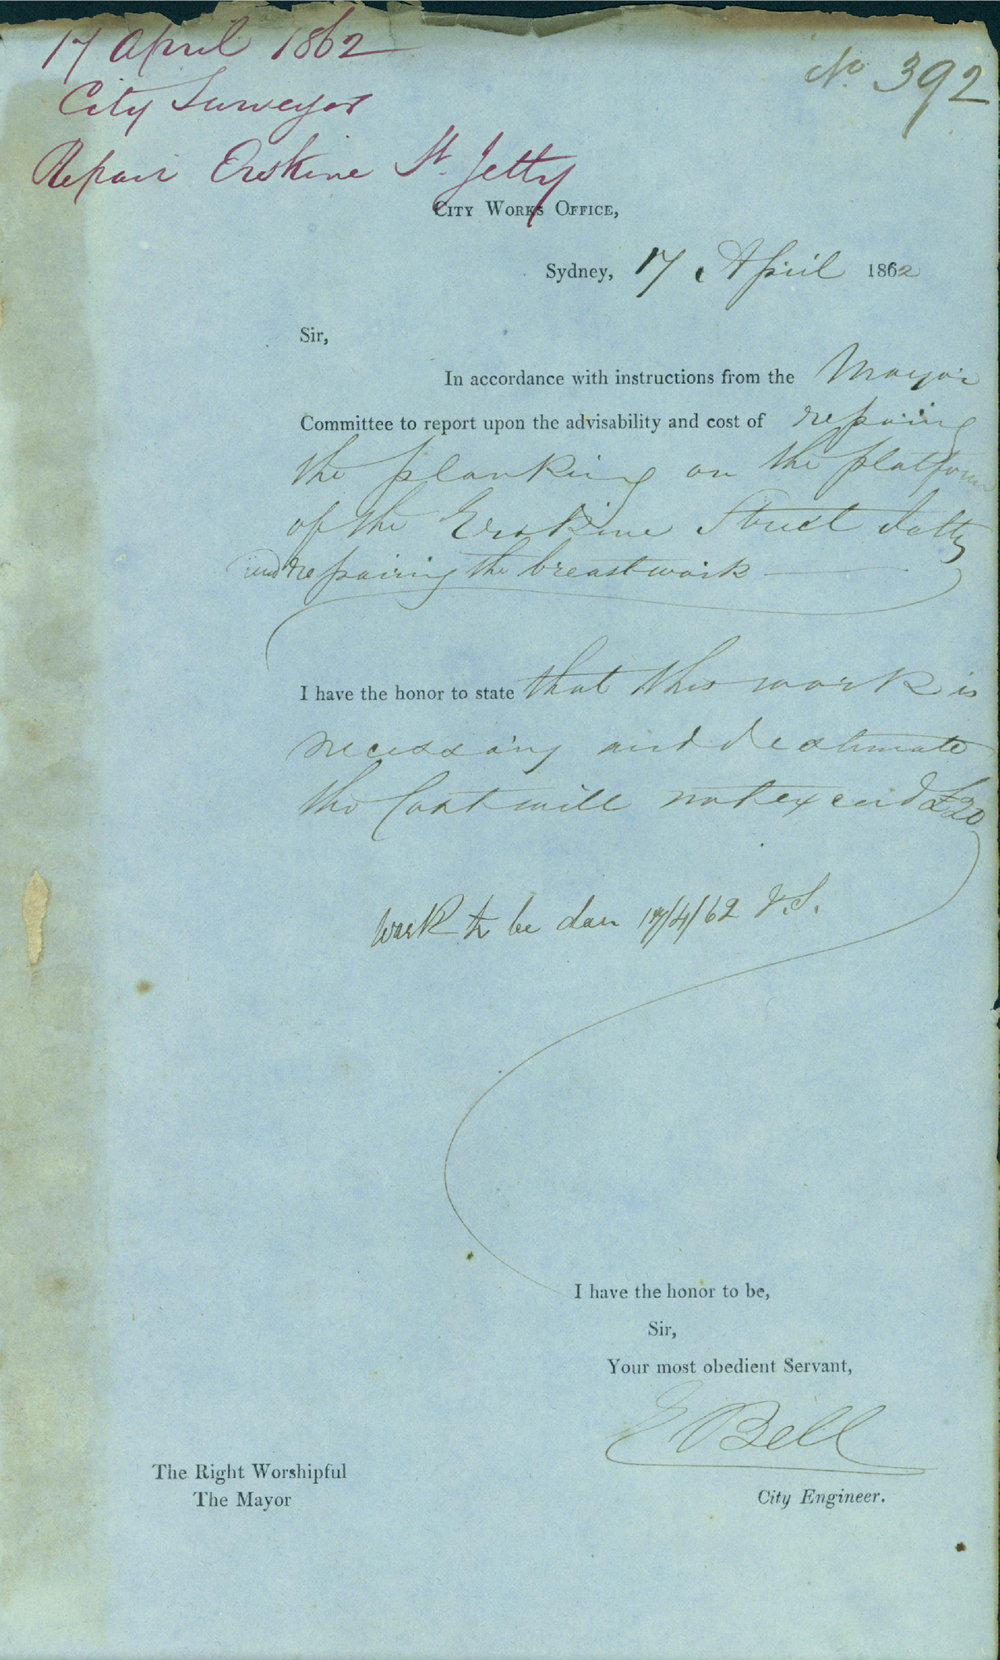 17 April 1862
No. 392
City Surveyor
Repair Erskine St. Jetty
City Works Office,
Sydney, 17 April 1862
Sir,
In accordance with instructions from the Mayor
Committee to report upon the advisability and cost of repairing
the planking on the platform
of the Erskine Street Jetty
and repairing the breastwork
I have the honor to state that this work is
necessary and I estimate
the Cost will not exceed £20
Work to be don 17/4/62 J.S.
I have the honor to be,
Sir,
Your most obedient Servant,
E Bell
The Right Worshipful
The Mayor
City Engineer.